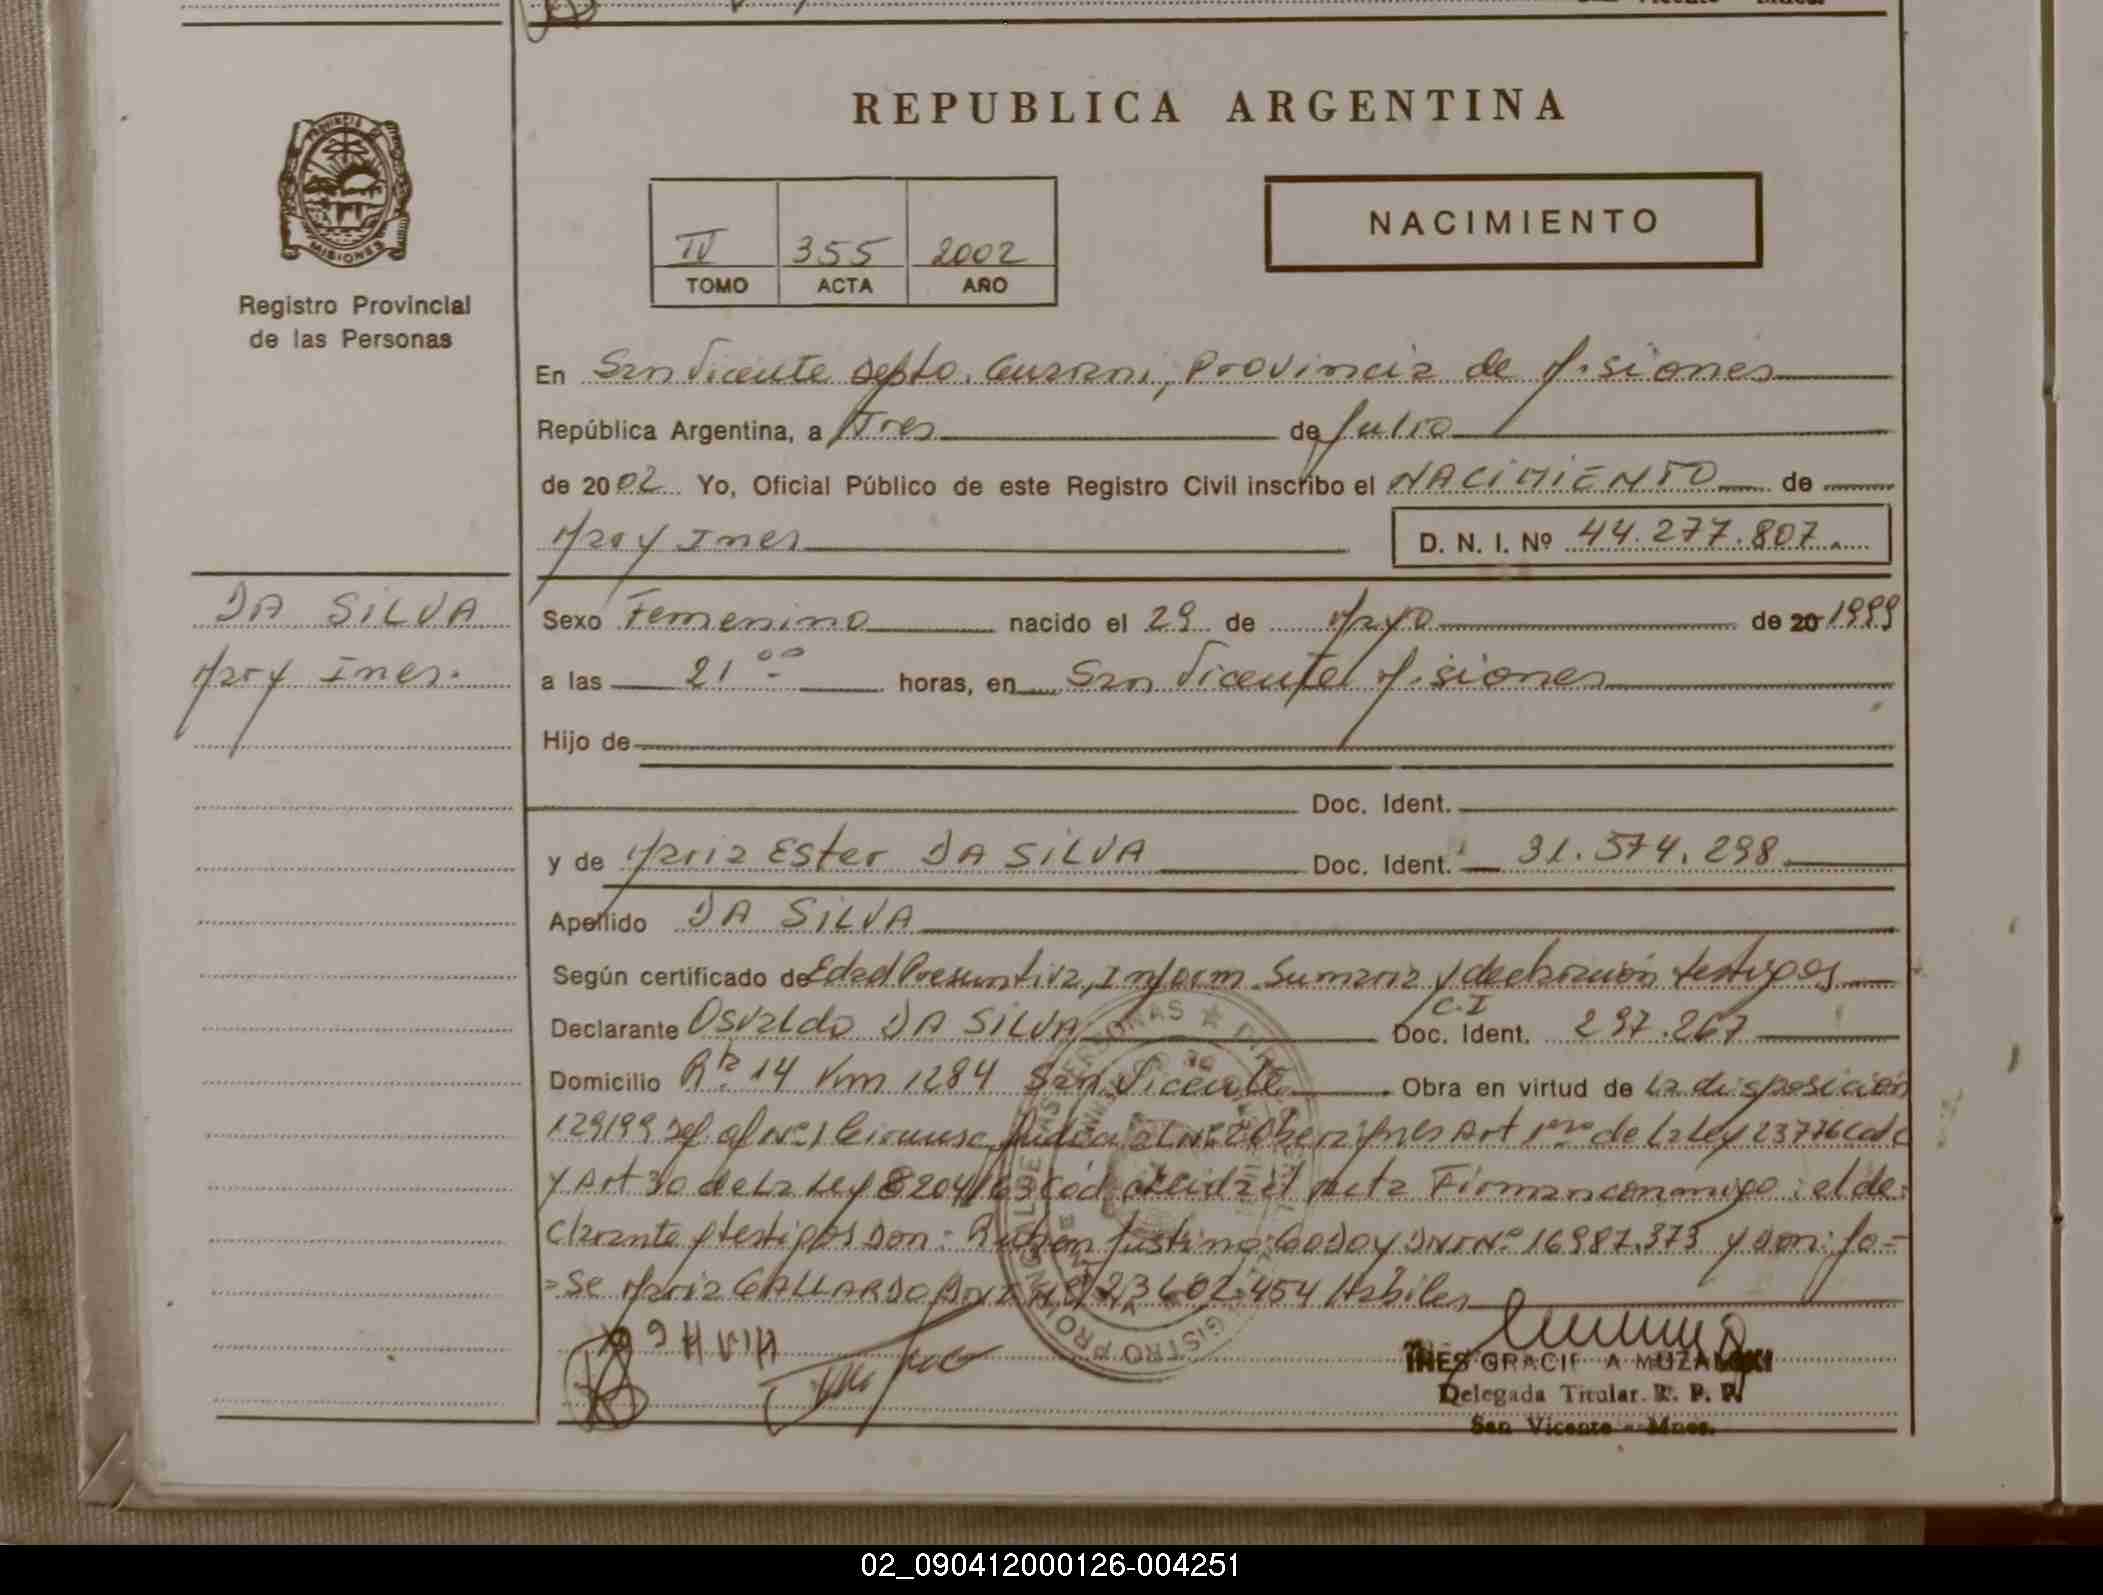 REPUBLICA ARGENTINA
PROVINCIA DE
MISIONES
Registro Provincial
de las Personas
IV 355 2002
TOMO ACTA AÑO
NACIMIENTO
En San Vicente Depto. Guarani, Provincia de Misiones
República Argentina, a Tres de Julio
de 2002 Yo, Oficial Público de este Registro Civil inscribo el NACIMIENTO de
D. N. I. Nº 44.277.807
Ines
DA SILVA
Ines.
Sexo Femenino nacido el 29 de Mayo de 20 1999
a las 21 00 horas, en San Vicente Misiones
Hijo de
Doc. Ident.
y de Maria Ester DA SILVA Doc. Ident. 31.574.298
Apellido DA SILVA
Según certificado de Edad Presuntiva, Inform Sumaria y declaración testigos
Declarante Osvaldo DA SILVA Doc. Ident. C.I 297.267
Domicilio Rta 14 Km 1284 San Vicente Obra en virtud de la disposición
129/99 Nº 1 Art 1ero de la Ley 23776
y Art 30 de la Ley 8204/63 acta Firman conmigo: el de-
clarante y testigos Don: Ruben Justino Godoy DNI Nº 16987.373 y Don: Jo-
=se Maria GALLARDO DNI Nº 23602.454 Habiles
INES GRACIELA
Delegada Titular. R. P. P.
San Vicente - Mnes.
02_090412000126-004251